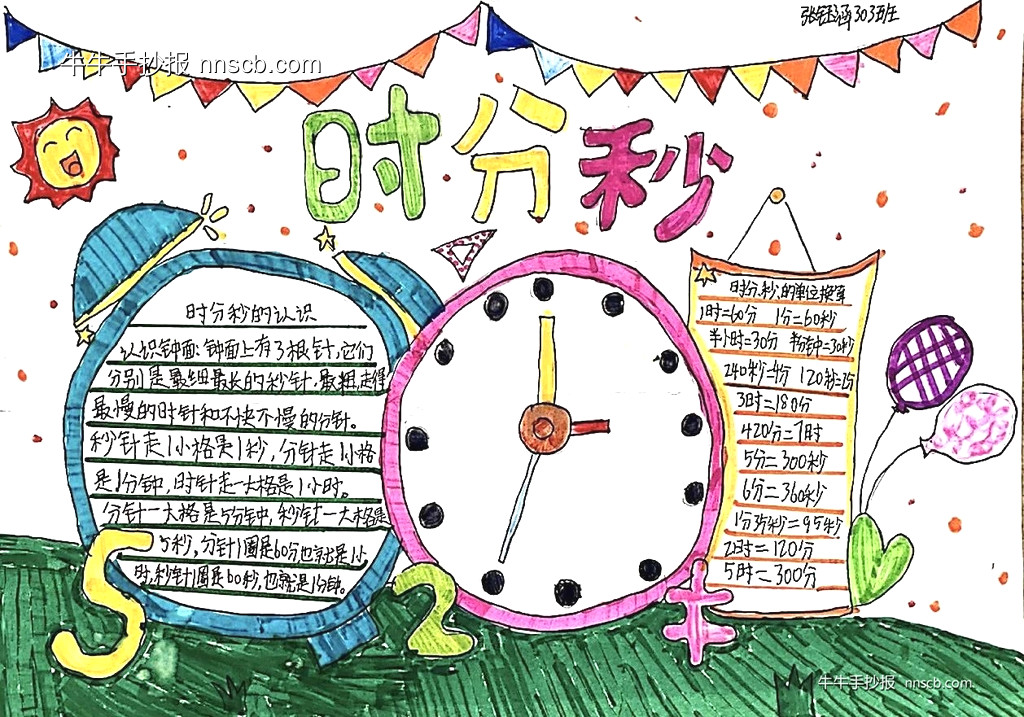 张钰涵303班
牛牛手抄报 nnscb.com
时分秒
时分秒的认识
认识钟面:钟面上有3根针,它们
分别是最细最长的秒针,最粗,走得
最慢的时针和不快不慢的分针。
秒针走1小格是1秒,分针走1小格
是1分钟,时针走一大格是1小时。
分针一大格是5分钟,秒针一大格是
5秒,分针1圈是60分也就是1小
时,秒针1圈是60秒,也就是1分钟。
时、分、秒、的单位换算
1时=60分 1分=60秒
半小时=30分 半分钟=30秒
240秒=4分 120秒=2分
3时=180分
420分=7时
5分=300秒
6分=360秒
1分35秒=95秒
2时=120分
5时=300分
5
2
牛牛手抄报 nnscb.com